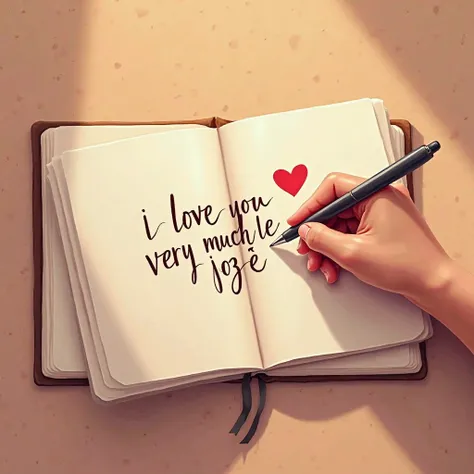 i love you
very much le
jozē